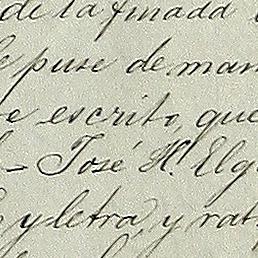 de la finada
puse de man
escrito, que
= José H.l Elg
y letra, y rat